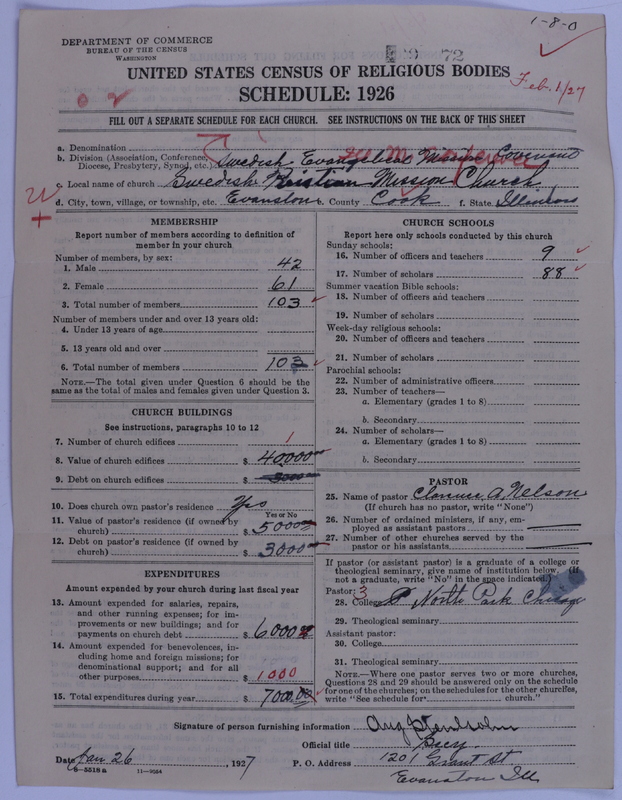 1-8-0
DEPARTMENT OF COMMERCE
BUREAU OF THE CENSUS
WASHINGTON
72
UNITED STATES CENSUS OF RELIGIOUS BODIES
Feb. 1/27
SCHEDULE: 1926
FILL OUT A SEPARATE SCHEDULE FOR EACH CHURCH. SEE INSTRUCTIONS ON THE BACK OF THIS SHEET
a. Denomination
b. Division (Association, Conference, Diocese, Presbytery, Synod, etc.) Swedish Evangelical Mission Covenant
c. Local name of church Swedish Kristian Mission Church
d. City, town, village, or township, etc. Evanston e. County Cook f. State Illinois
MEMBERSHIP
Report number of members according to definition of
member in your church
Number of members, by sex:
1. Male 42
2. Female 61
3. Total number of members 103
Number of members under and over 13 years old:
4. Under 13 years of age
5. 13 years old and over
6. Total number of members 103
NOTE.—The total given under Question 6 should be the
same as the total of males and females given under Question 3.
CHURCH BUILDINGS
See instructions, paragraphs 10 to 12
7. Number of church edifices 1
8. Value of church edifices $ 40000
9. Debt on church edifices $
10. Does church own pastor's residence? Yes
Yes or No
11. Value of pastor's residence (if owned by
church) $ 5000
12. Debt on pastor's residence (if owned by
church) $ 3000
EXPENDITURES
Amount expended by your church during last fiscal year
13. Amount expended for salaries, repairs,
and other running expenses; for im-
provements or new buildings; and for
payments on church debt $ 6000
14. Amount expended for benevolences, in-
cluding home and foreign missions; for
denominational support; and for all
other purposes $ 1000
15. Total expenditures during year $ 7000.00
CHURCH SCHOOLS
Report here only schools conducted by this church
Sunday schools:
16. Number of officers and teachers 9
17. Number of scholars 88
Summer vacation Bible schools:
18. Number of officers and teachers
19. Number of scholars
Week-day religious schools:
20. Number of officers and teachers
21. Number of scholars
Parochial schools:
22. Number of administrative officers
23. Number of teachers—
a. Elementary (grades 1 to 8)
b. Secondary
24. Number of scholars—
a. Elementary (grades 1 to 8)
b. Secondary
PASTOR
25. Name of pastor Clarence A. Nelson
(If church has no pastor, write "None")
26. Number of ordained ministers, if any, em-
ployed as assistant pastors
27. Number of other churches served by the
pastor or his assistants
If pastor (or assistant pastor) is a graduate of a college or
theological seminary, give name of institution below. (If
not a graduate, write "No" in the space indicated.)
Pastor: 3
28. College North Park Chicago
29. Theological seminary
Assistant pastor:
30. College
31. Theological seminary
NOTE.—Where one pastor serves two or more churches,
Questions 28 and 29 should be answered only on the schedule
for one of the churches; on the schedules for the other churches,
write "See schedule for church."
Signature of person furnishing information Aug Stenholm
Official title Secy
Date Jan 26, 1927 P. O. Address 1201 Grant St
8-5518a 11-9064
Evanston Ill